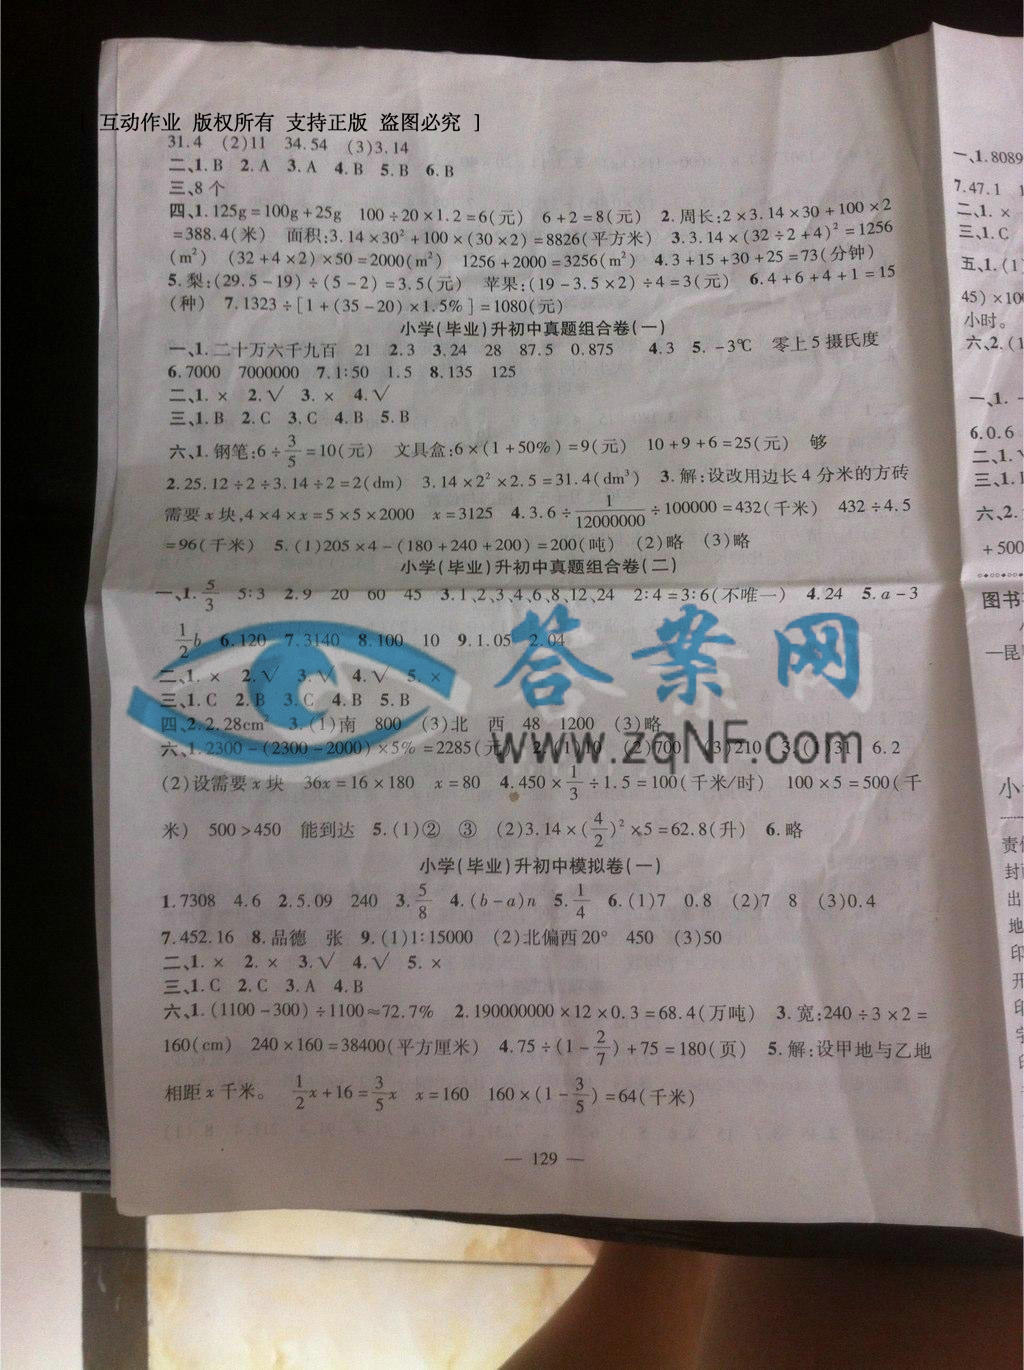 [ 互动作业 版权所有 支持正版 盗图必究 ]
31.4 (2)11 34.54 (3)3.14
二、1.B 2.A 3.A 4.B 5.B 6.B
三、8个
四、1.125g=100g+25g 100÷20×1.2=6(元) 6+2=8(元) 2.周长:2×3.14×30+100×2
=388.4(米) 面积:3.14×30²+100×(30×2)=8826(平方米) 3.3.14×(32÷2+4)²=1256
(m²) (32+4×2)×50=2000(m²) 1256+2000=3256(m²) 4.3+15+30+25=73(分钟)
5.梨:(29.5-19)÷(5-2)=3.5(元) 苹果:(19-3.5×2)÷4=3(元) 6.4+6+4+1=15
(种) 7.1323÷[1+(35-20)×1.5%]=1080(元)
小学(毕业)升初中真题组合卷(一)
一、1.二十万六千九百 21 2.3 3.24 28 87.5 0.875 4.3 5.-3℃ 零上5摄氏度
6.7000 7000000 7.1:50 1.5 8.135 125
二、1.× 2.√ 3.× 4.√
三、1.B 2.C 3.C 4.B 5.B
六、1.钢笔:6÷3/5=10(元) 文具盒:6×(1+50%)=9(元) 10+9+6=25(元) 够
2.25.12÷2÷3.14÷2=2(dm) 3.14×2²×2.5=31.4(dm³) 3.解:设改用边长4分米的方砖
需要x块,4×4×x=5×5×2000 x=3125 4.3.6÷1/12000000÷100000=432(千米) 432÷4.5
=96(千米) 5.(1)205×4-(180+240+200)=200(吨) (2)略 (3)略
小学(毕业)升初中真题组合卷(二)
一、1.5/3 5:3 2.9 20 60 45 3.1、2、3、4、6、8、12、24 2:4=3:6(不唯一) 4.24 5.a-3
1/2b 6.120 7.3140 8.100 10 9.1.05 2.04
二、1.× 2.√ 3.√ 4.√ 5.×
三、1.C 2.B 3.C 4.B 5.B
四、2.2.28cm² 3.(1)南 800 (3)北 西 48 1200 (3)略
六、1.2300-(2300-2000)×5%=2285(元) 2.(1)10 (2)700 (3)210 3.(1)31 6.2
(2)设需要x块 36x=16×180 x=80 4.450×1/3÷1.5=100(千米/时) 100×5=500(千
米) 500>450 能到达 5.(1)② ③ (2)3.14×(4/2)²×5=62.8(升) 6.略
小学(毕业)升初中模拟卷(一)
1.7308 4.6 2.5.09 240 3.5/8 4.(b-a)n 5.1/4 6.(1)7 0.8 (2)7 8 (3)0.4
7.452.16 8.品德 张 9.(1)1:15000 (2)北偏西20° 450 (3)50
二、1.× 2.× 3.√ 4.√ 5.×
三、1.C 2.C 3.A 4.B
六、1.(1100-300)÷1100≈72.7% 2.190000000×12×0.3=68.4(万吨) 3.宽:240÷3×2=
160(cm) 240×160=38400(平方厘米) 4.75÷(1-2/7)+75=180(页) 5.解:设甲地与乙地
相距x千米。 1/2x+16=3/5x x=160 160×(1-3/5)=64(千米)
— 129 —
答案网
www.zqNF.com
一、1.8089
7.47.1
二、1.×
三、1.C
五、1.(1
45)×100
小时。
六、2.(1
一、1.
6.0.6
二、1.√
三、1.
六、2.
+500
图书
—昆
小
责
封
出
地
印
开
印
字